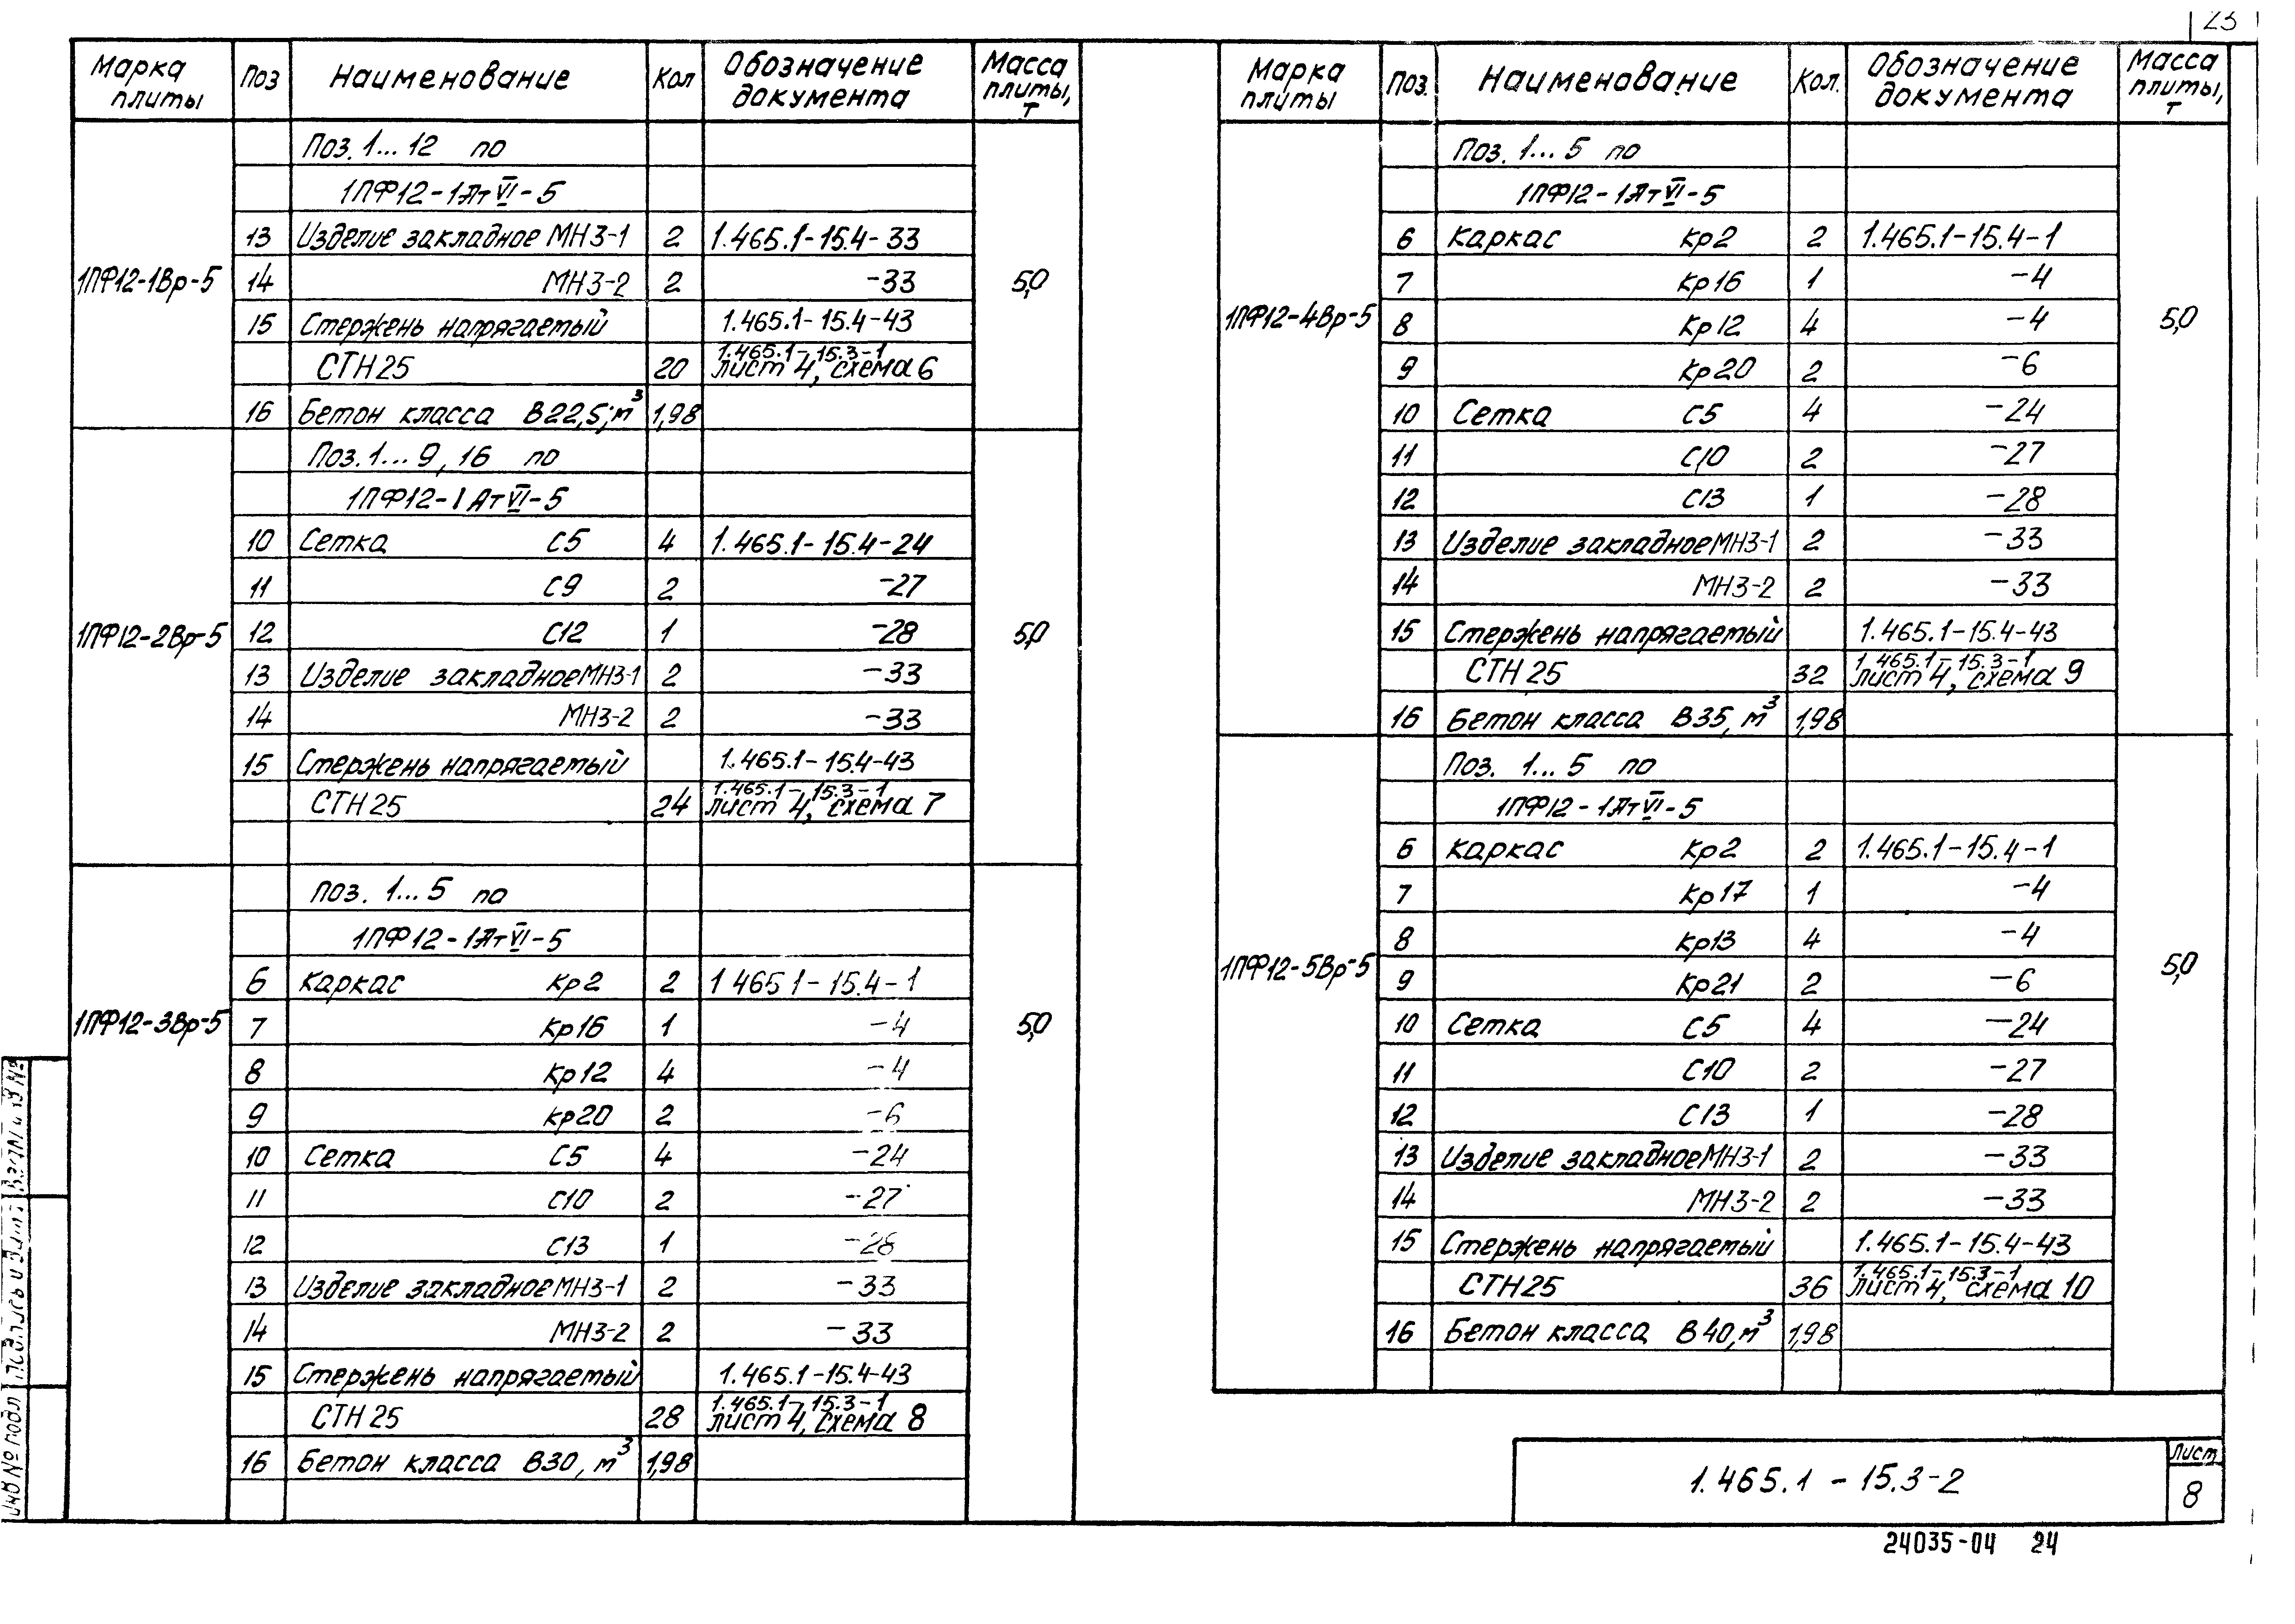 23
Марка плиты | Поз | Наименование | Кол | Обозначение документа | Масса плиты, т
1ПФ12-1Вр-5 | 5,0
Поз. 1...12 по
1ПФ12-1АтVI-5
13 | Изделие закладное МН3-1 | 2 | 1.465.1-15.4-33
14 | МН3-2 | 2 | -33
15 | Стержень напрягаемый | 1.465.1-15.4-43
СТН25 | 20 | 1.465.1-15.3-1 лист 4, схема 6
16 | Бетон класса В22,5, м³ | 1,98
1ПФ12-2Вр-5 | 5,0
Поз. 1...9, 16 по
1ПФ12-1АтVI-5
10 | Сетка С5 | 4 | 1.465.1-15.4-24
11 | С9 | 2 | -27
12 | С12 | 1 | -28
13 | Изделие закладное МН3-1 | 2 | -33
14 | МН3-2 | 2 | -33
15 | Стержень напрягаемый | 1.465.1-15.4-43
СТН25 | 24 | 1.465.1-15.3-1 лист 4, схема 7
1ПФ12-3Вр-5 | 5,0
Поз. 1...5 по
1ПФ12-1АтVI-5
6 | Каркас Кр2 | 2 | 1 465 1-15.4-1
7 | Кр16 | 1 | -4
8 | Кр12 | 4 | -4
9 | Кр20 | 2 | -6
10 | Сетка С5 | 4 | -24
11 | С10 | 2 | -27
12 | С13 | 1 | -28
13 | Изделие закладное МН3-1 | 2 | -33
14 | МН3-2 | 2 | -33
15 | Стержень напрягаемый | 1.465.1-15.4-43
СТН25 | 28 | 1.465.1-15.3-1 лист 4, схема 8
16 | Бетон класса В30, м³ | 1,98
Марка плиты | Поз. | Наименование | Кол. | Обозначение документа | Масса плиты, т
1ПФ12-4Вр-5 | 5,0
Поз. 1...5 по
1ПФ12-1АтVI-5
6 | Каркас Кр2 | 2 | 1.465.1-15.4-1
7 | Кр16 | 1 | -4
8 | Кр12 | 4 | -4
9 | Кр20 | 2 | -6
10 | Сетка С5 | 4 | -24
11 | С10 | 2 | -27
12 | С13 | 1 | -28
13 | Изделие закладное МН3-1 | 2 | -33
14 | МН3-2 | 2 | -33
15 | Стержень напрягаемый | 1.465.1-15.4-43
СТН25 | 32 | 1.465.1-15.3-1 лист 4, схема 9
16 | Бетон класса В35, м³ | 1,98
1ПФ12-5Вр-5 | 5,0
Поз. 1...5 по
1ПФ12-1АтVI-5
6 | Каркас Кр2 | 2 | 1.465.1-15.4-1
7 | Кр17 | 1 | -4
8 | Кр13 | 4 | -4
9 | Кр21 | 2 | -6
10 | Сетка С5 | 4 | -24
11 | С10 | 2 | -27
12 | С13 | 1 | -28
13 | Изделие закладное МН3-1 | 2 | -33
14 | МН3-2 | 2 | -33
15 | Стержень напрягаемый | 1.465.1-15.4-43
СТН25 | 36 | 1.465.1-15.3-1 лист 4, схема 10
16 | Бетон класса В40, м³ | 1,98
Инв № подл
1.465.1-15.3-2
Лист
8
24035-04 24